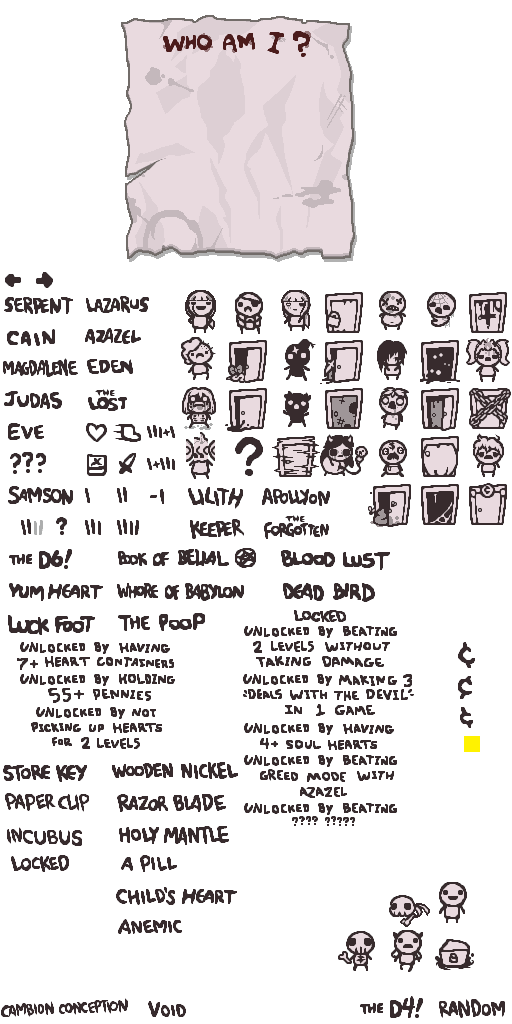 WHO AM I ?
SERPENT LAZARUS
CAIN AZAZEL
MAGDALENE EDEN
JUDAS THE LOST
EVE
???
?
SAMSON LILITH APOLLYON
? KEEPER THE FORGOTTEN
THE D6! BOOK OF BELIAL BLOOD LUST
YUM HEART WHORE OF BABYLON DEAD BIRD
LUCK FOOT THE POOP
LOCKED
UNLOCKED BY BEATING
2 LEVELS WITHOUT
TAKING DAMAGE
UNLOCKED BY HAVING
7+ HEART CONTAINERS
UNLOCKED BY HOLDING
55+ PENNIES
UNLOCKED BY NOT
PICKING UP HEARTS
FOR 2 LEVELS
UNLOCKED BY MAKING 3
"DEALS WITH THE DEVIL"
IN 1 GAME
UNLOCKED BY HAVING
4+ SOUL HEARTS
UNLOCKED BY BEATING
GREED MODE WITH
AZAZEL
UNLOCKED BY BEATING
???? ?????
¢
¢
¢
STORE KEY WOODEN NICKEL
PAPER CLIP RAZOR BLADE
INCUBUS HOLY MANTLE
LOCKED A PILL
CHILD'S HEART
ANEMIC
CAMBION CONCEPTION VOID THE D4! RANDOM